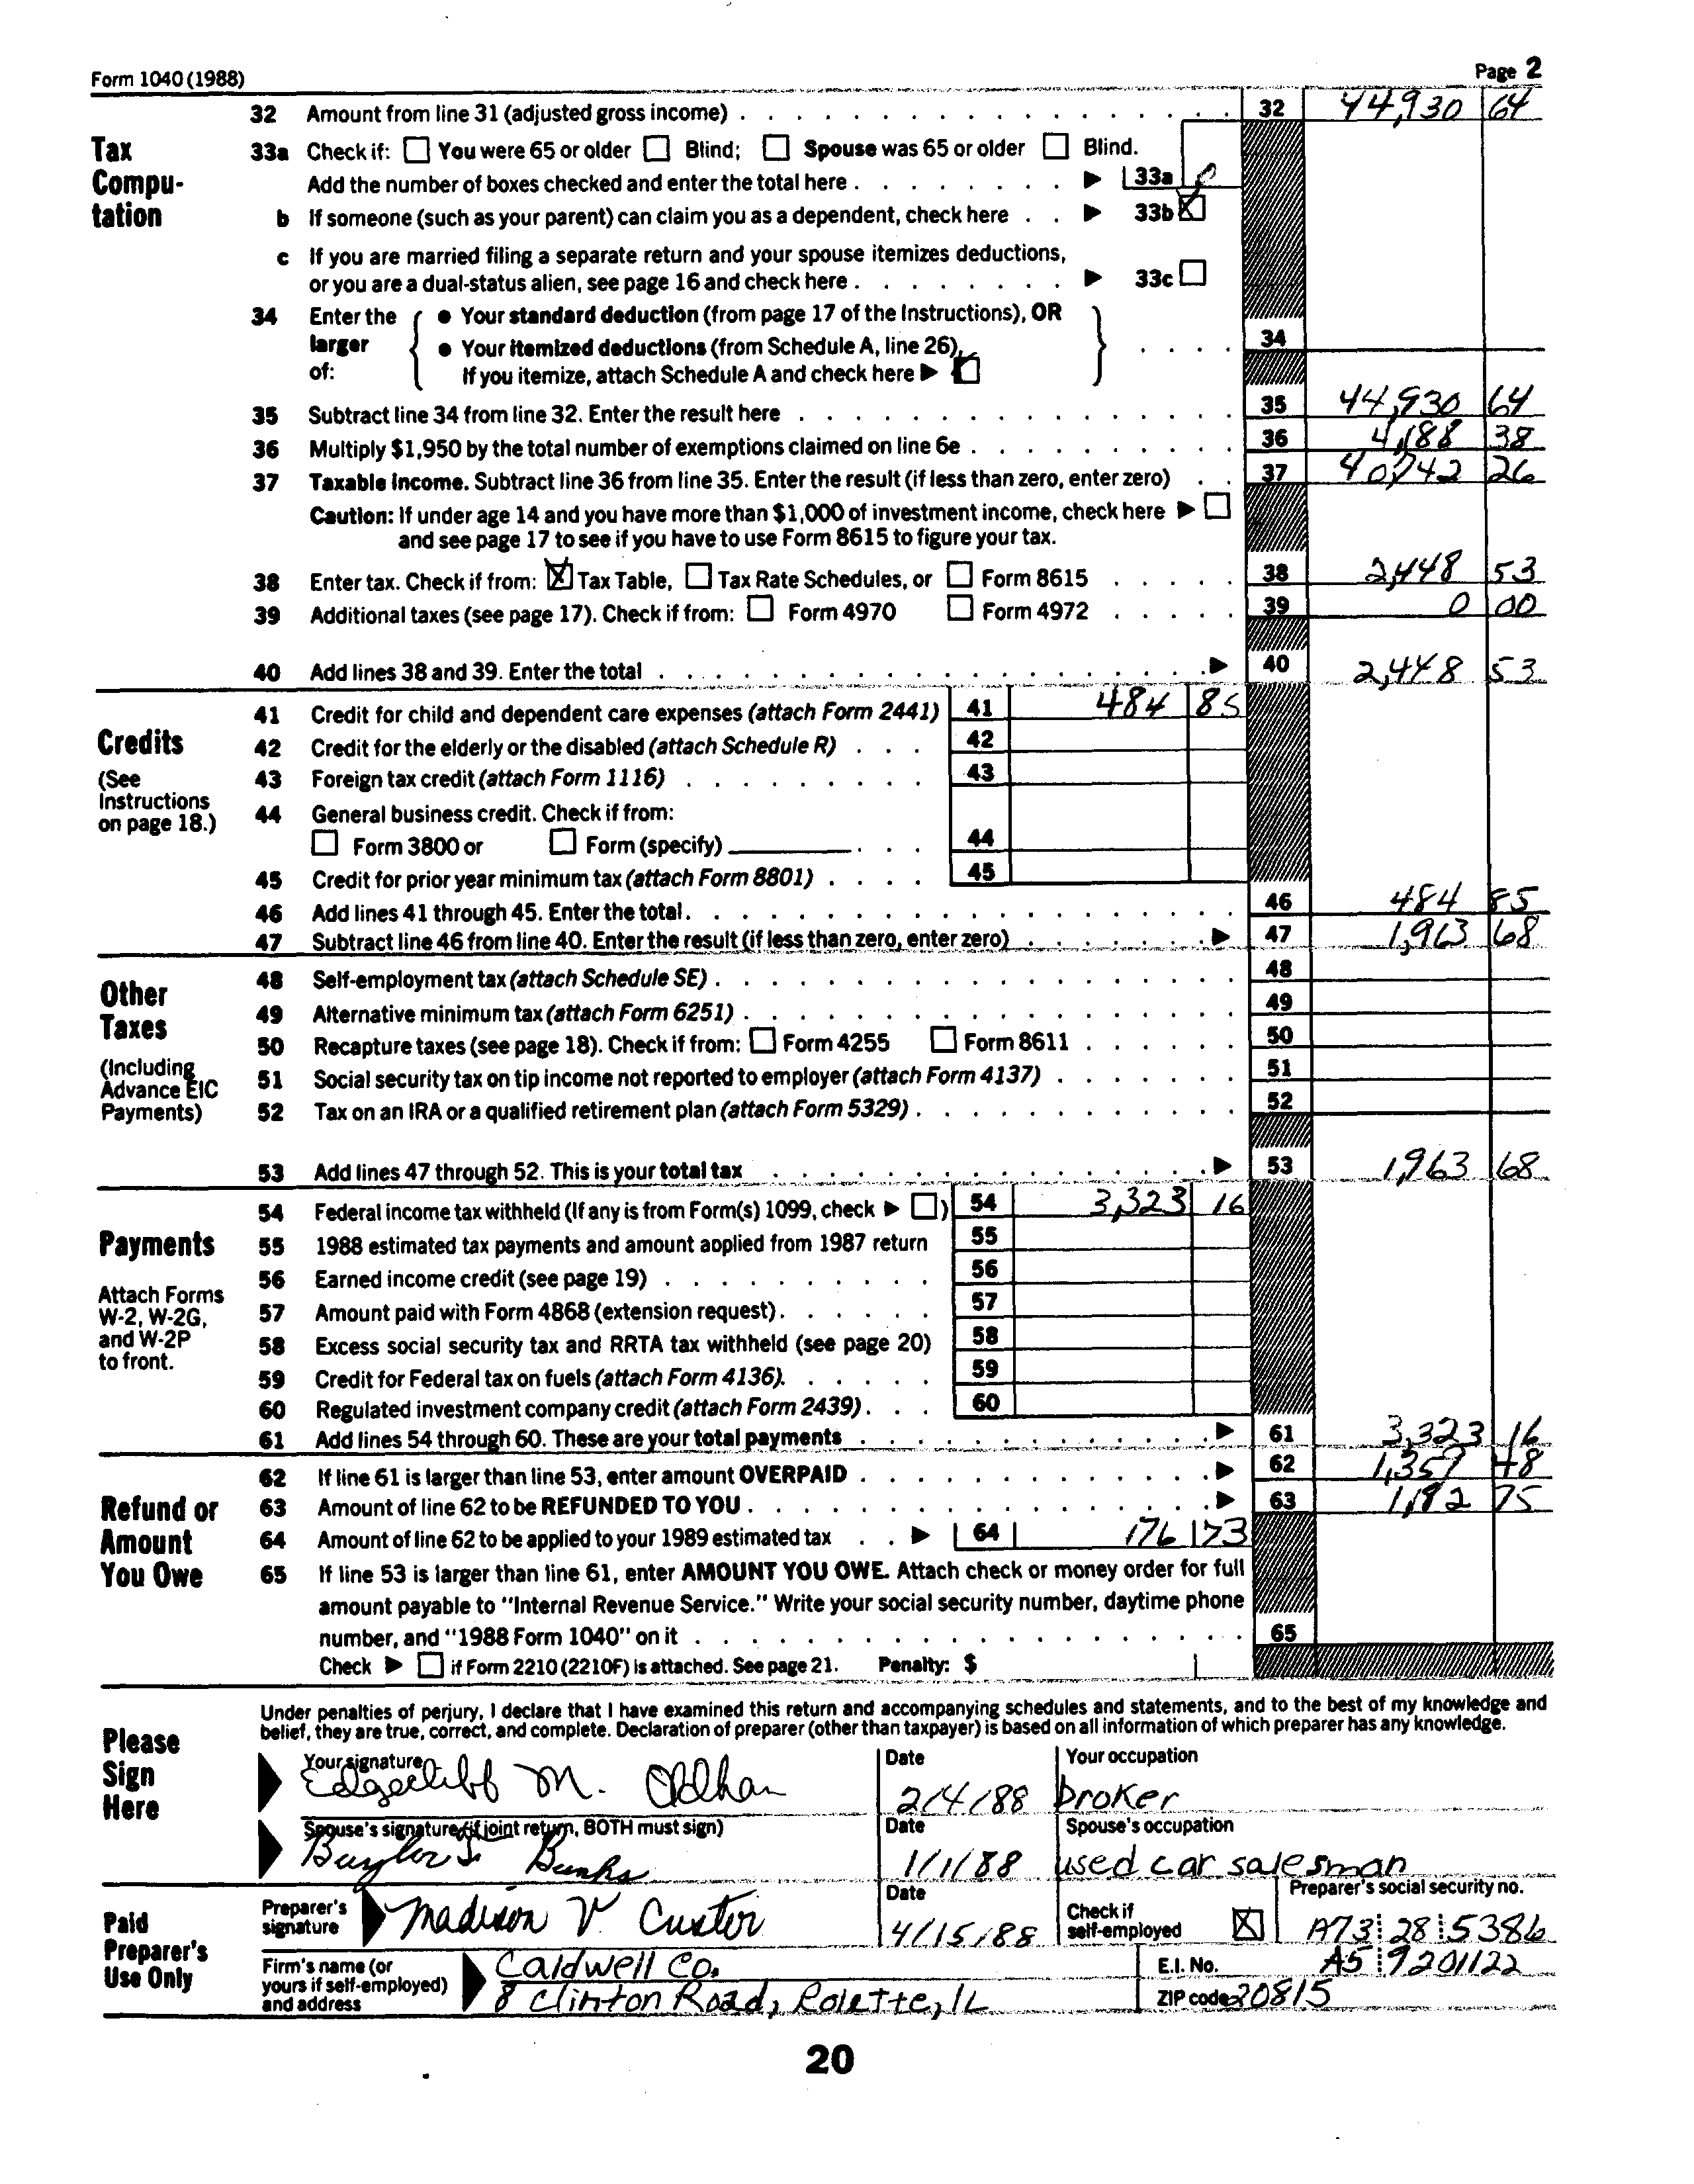 Form 1040 (1988) Page 2
32 Amount from line 31 (adjusted gross income) 32 44,930 64
Tax Compu-tation
33a Check if: You were 65 or older Blind; Spouse was 65 or older Blind.
Add the number of boxes checked and enter the total here 33a 0
b If someone (such as your parent) can claim you as a dependent, check here 33b X
c If you are married filing a separate return and your spouse itemizes deductions,
or you are a dual-status alien, see page 16 and check here 33c
34 Enter the larger of:
• Your standard deduction (from page 17 of the Instructions), OR
• Your itemized deductions (from Schedule A, line 26). 34
If you itemize, attach Schedule A and check here
35 Subtract line 34 from line 32. Enter the result here 35 44,930 64
36 Multiply $1,950 by the total number of exemptions claimed on line 6e 36 4,188 38
37 Taxable income. Subtract line 36 from line 35. Enter the result (if less than zero, enter zero) 37 40,742 26
Caution: If under age 14 and you have more than $1,000 of investment income, check here
and see page 17 to see if you have to use Form 8615 to figure your tax.
38 Enter tax. Check if from: X Tax Table, Tax Rate Schedules, or Form 8615 38 2,448 53
39 Additional taxes (see page 17). Check if from: Form 4970 Form 4972 39 0 00
40 Add lines 38 and 39. Enter the total 40 2,448 53
Credits
(See Instructions on page 18.)
41 Credit for child and dependent care expenses (attach Form 2441) 41 484 85
42 Credit for the elderly or the disabled (attach Schedule R) 42
43 Foreign tax credit (attach Form 1116) 43
44 General business credit. Check if from:
Form 3800 or Form (specify) 44
45 Credit for prior year minimum tax (attach Form 8801) 45
46 Add lines 41 through 45. Enter the total. 46 484 85
47 Subtract line 46 from line 40. Enter the result (if less than zero, enter zero) 47 1,963 68
Other Taxes
(Including Advance EIC Payments)
48 Self-employment tax (attach Schedule SE) 48
49 Alternative minimum tax (attach Form 6251) 49
50 Recapture taxes (see page 18). Check if from: Form 4255 Form 8611 50
51 Social security tax on tip income not reported to employer (attach Form 4137) 51
52 Tax on an IRA or a qualified retirement plan (attach Form 5329) 52
53 Add lines 47 through 52. This is your total tax 53 1,963 68
Payments
Attach Forms W-2, W-2G, and W-2P to front.
54 Federal income tax withheld (If any is from Form(s) 1099, check ) 54 3,323 16
55 1988 estimated tax payments and amount applied from 1987 return 55
56 Earned income credit (see page 19) 56
57 Amount paid with Form 4868 (extension request) 57
58 Excess social security tax and RRTA tax withheld (see page 20) 58
59 Credit for Federal tax on fuels (attach Form 4136) 59
60 Regulated investment company credit (attach Form 2439) 60
61 Add lines 54 through 60. These are your total payments 61 3,323 16
Refund or Amount You Owe
62 If line 61 is larger than line 53, enter amount OVERPAID 62 1,359 48
63 Amount of line 62 to be REFUNDED TO YOU 63 1,182 75
64 Amount of line 62 to be applied to your 1989 estimated tax 64 176 73
65 If line 53 is larger than line 61, enter AMOUNT YOU OWE. Attach check or money order for full
amount payable to "Internal Revenue Service." Write your social security number, daytime phone
number, and "1988 Form 1040" on it 65
Check if Form 2210 (2210F) is attached. See page 21. Penalty: $
Please Sign Here
Under penalties of perjury, I declare that I have examined this return and accompanying schedules and statements, and to the best of my knowledge and
belief, they are true, correct, and complete. Declaration of preparer (other than taxpayer) is based on all information of which preparer has any knowledge.
Your signature Date Your occupation
Edgecliff M. Oldham 2/4/88 broker
Spouse's signature (if joint return, BOTH must sign) Date Spouse's occupation
Banks 1/1/88 used car salesman
Paid Preparer's Use Only
Preparer's signature Date Check if self-employed Preparer's social security no.
Madison V. Custer 4/15/88 X A73 28 5386
Firm's name (or yours if self-employed) and address E.I. No. ZIP code
Caldwell Co. A5 9201122
8 Clinton Road, Rolette, IL 20815
20